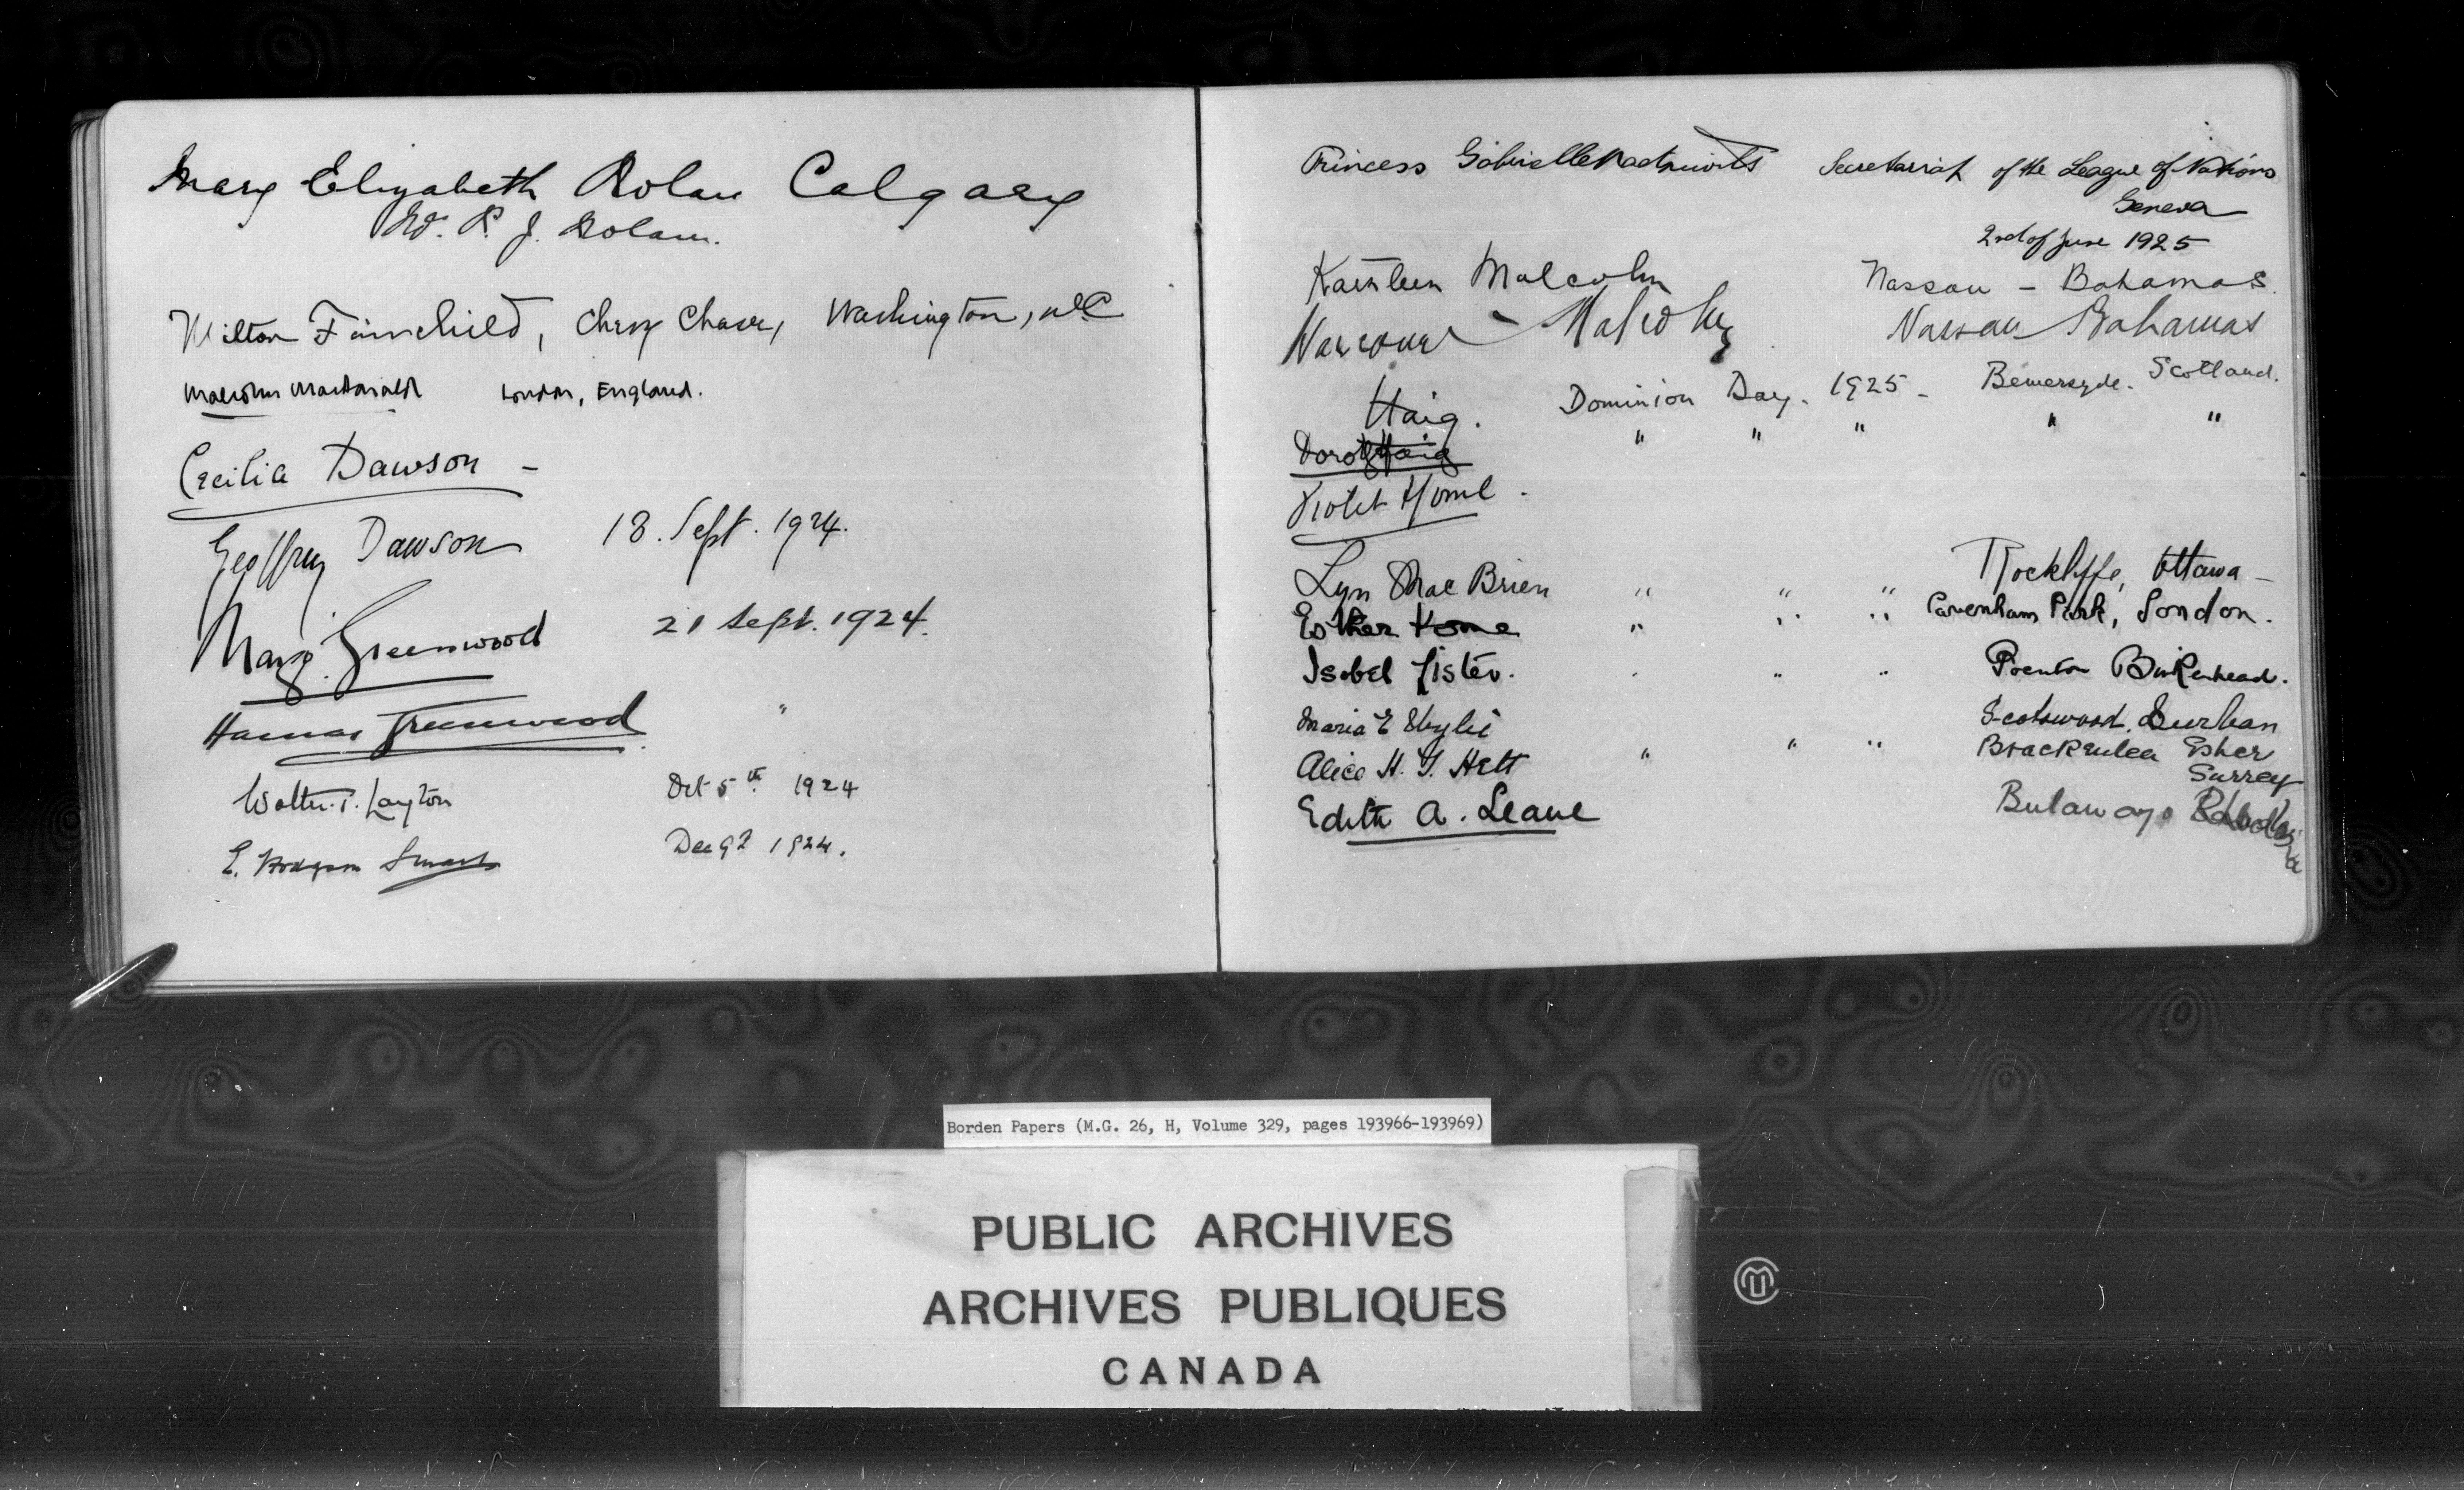 Mary Elizabeth Nolan Calgary
P. J. Nolan.
Milton Fairchild, Chevy Chase, Washington, D.C.
Malcolm MacDonald London, England.
Cecilia Dawson -
Geoffrey Dawson 18. Sept. 1924.
Margo Greenwood 21 Sept. 1924.
Hamar Greenwood "
Walter T. Layton Oct 5th 1924
E. Hodgson Smart Dec 1924.
Princess Gabrielle Radziwill Secretariat of the League of Nations
Geneva
2nd of June 1925
Kathleen Malcolm Nassau - Bahamas.
Malcolm Nassau Bahamas
Haig. Dominion Day. 1925 - Bemersyde. Scotland.
Dorothy Haig " " " " "
Violet Home.
Lyn MacBrien " " " Rockliffe, Ottawa -
Esther Home " " " Cavenham Park, London.
Isobel Lister. " " " Prenton Birkenhead.
Maria E Scotswood. Durban
Alice H. T. Hett " " " Brackenlea Esher
Surrey
Edith A. Leane Bulawayo Rhodesia
Borden Papers (M.G. 26, H, Volume 329, pages 193966-193969)
PUBLIC ARCHIVES
ARCHIVES PUBLIQUES
CANADA